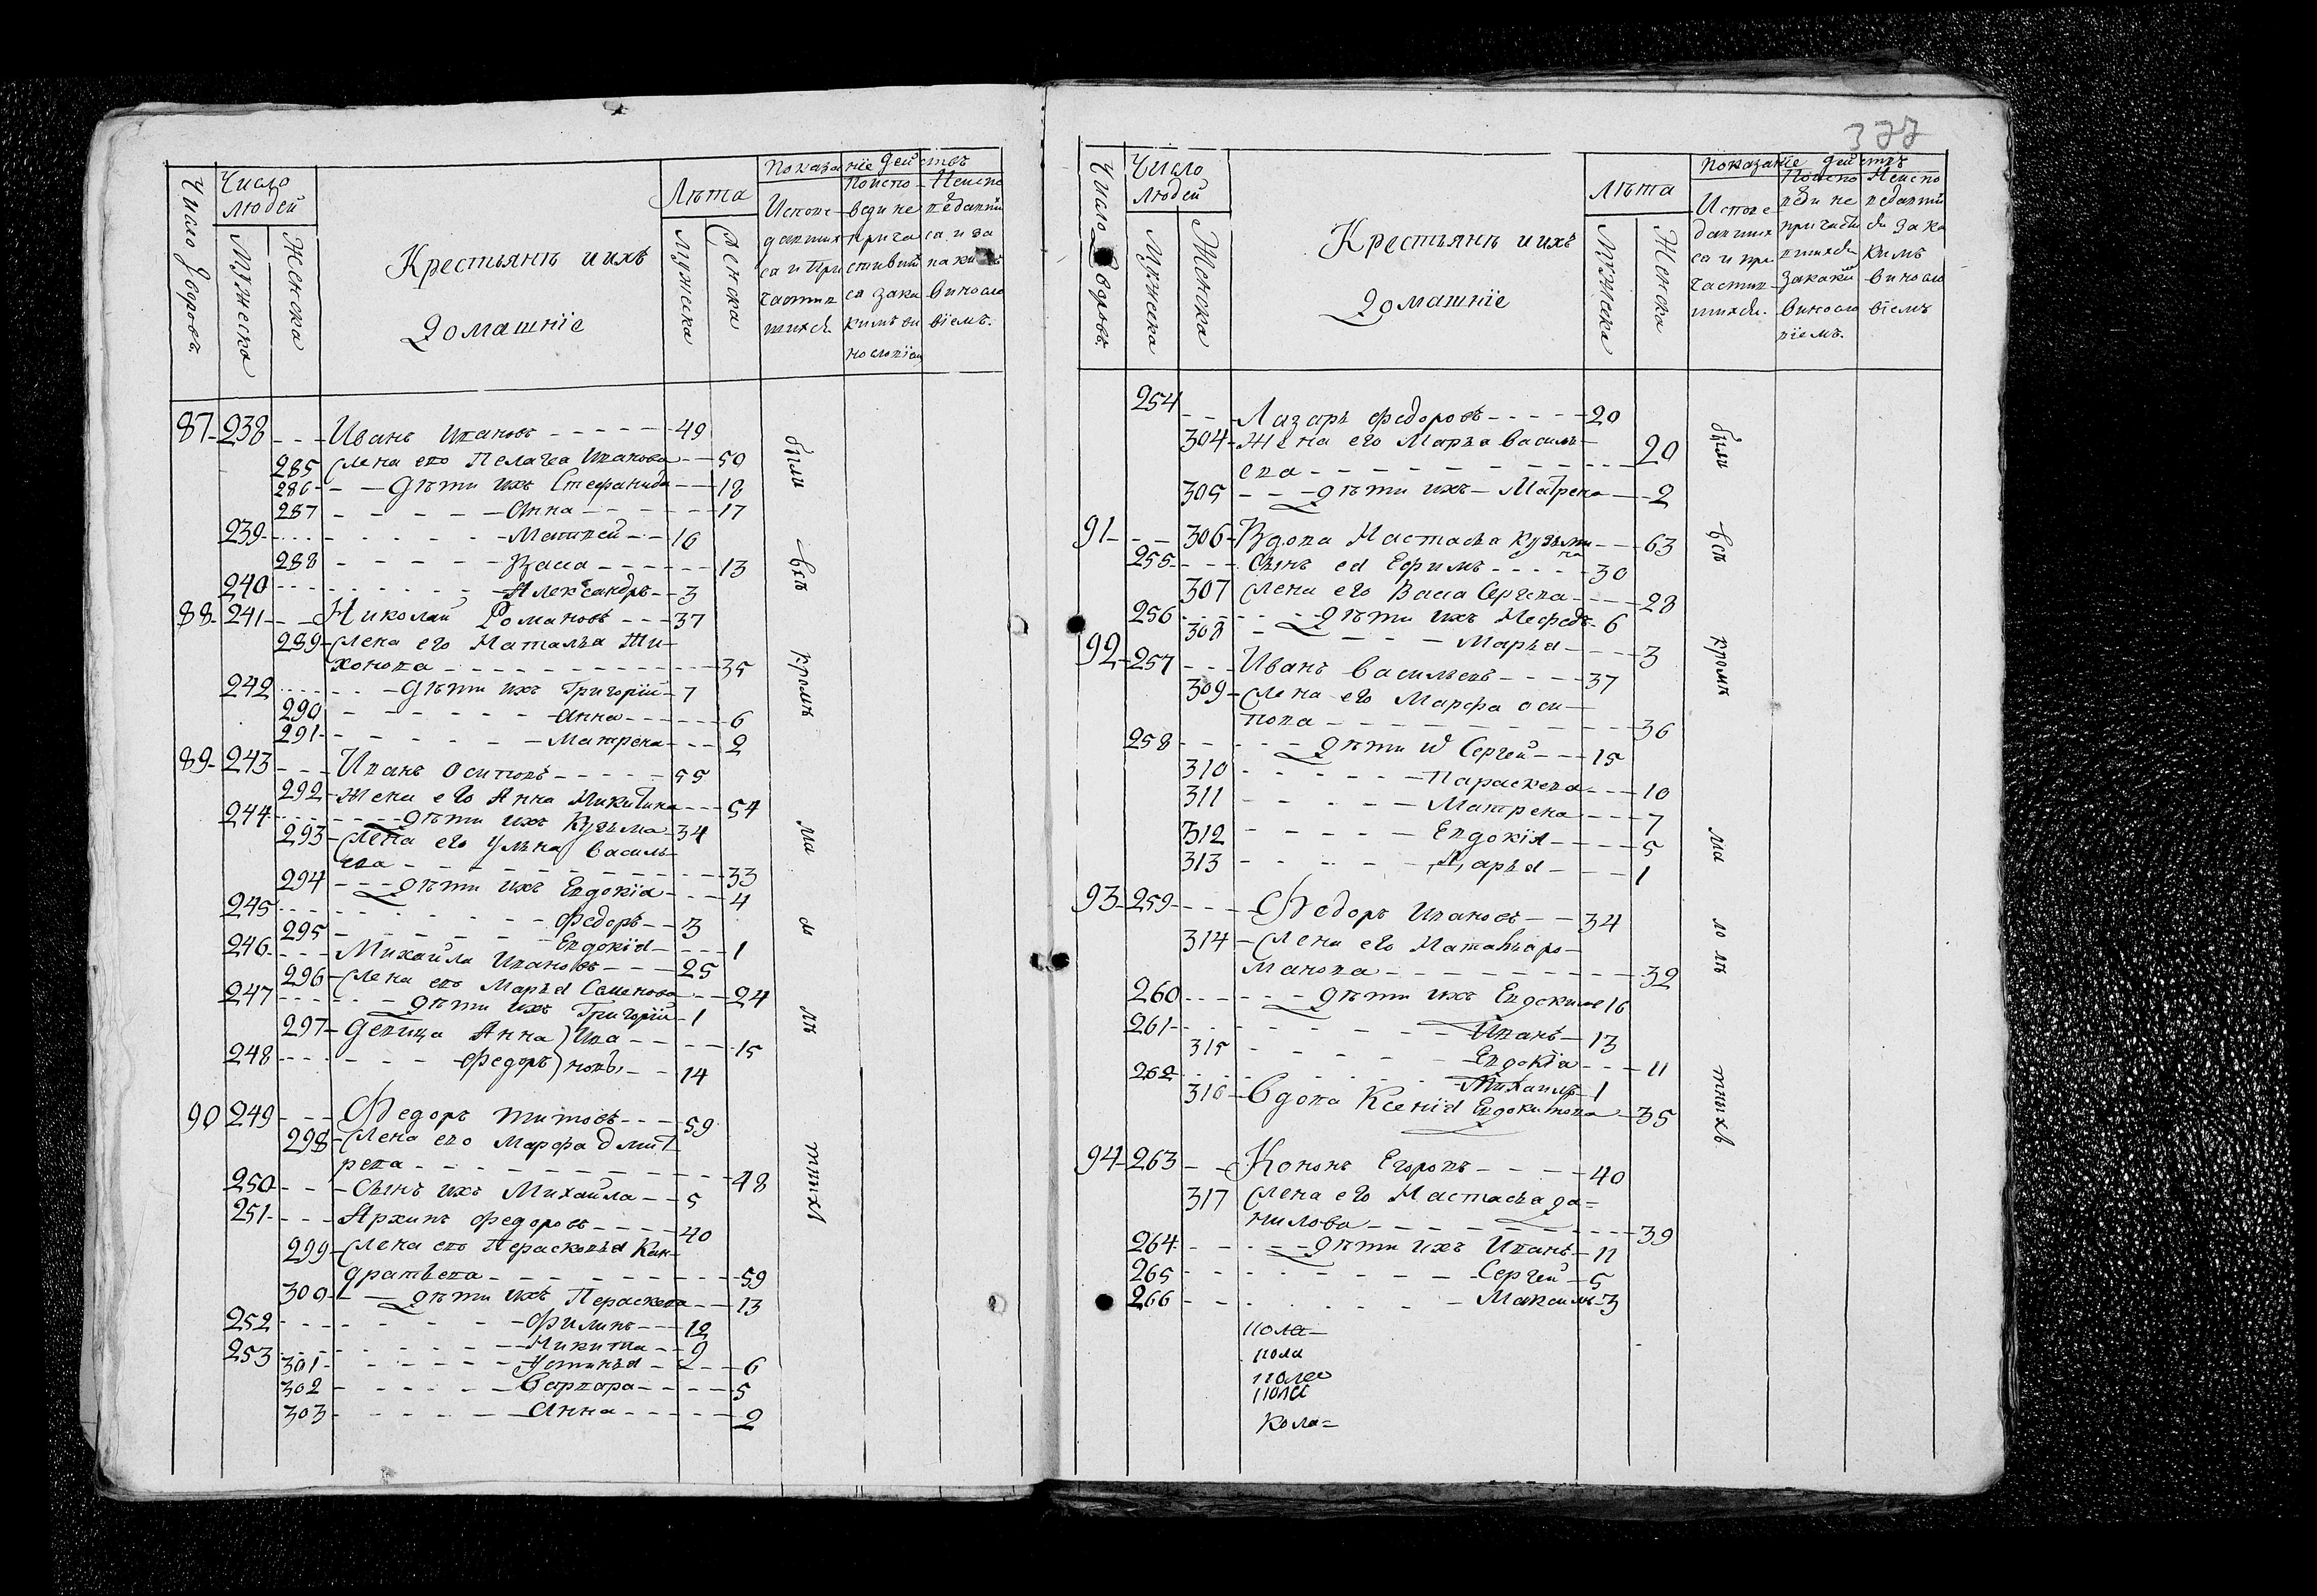 Число дворовъ.
Число людей
Мужеска
Женска
Крестьянъ и ихъ
Домашніе
Лѣта
Мужеска
Женска
Показаніе действъ
Испове
давших
ся и При
частив
шихся
Поиспо
веди не
прича
стивши
ся заки
кимъ ви
нословіем
Неиспо
ведавши
ся и за
каки
виносло
віемъ.
87 238 Иванъ Ивановъ 49
285 Жена его Пелагеа Иванова 50
286 дѣти ихъ Стефанида 18
287 Анна 17
239 Матвей 16
288 Васса 13
240 Александръ 3
88 241 Николай Романовъ 37
289 Жена его Наталья Ти
хонова 35
242 дѣти ихъ Григорій 7
290 Анна 6
291 Матрена 2
89 243 Иванъ Осиповъ 55
292 Жена его Анна Микитина 54
244 дѣти ихъ Кузьма 34
293 Жена его Ульяна Василь
ева 33
294 дѣти ихъ Евдокія 4
245 Федоръ 3
295 Евдокія 1
246 Михайла Ивановъ 25
296 Жена его Марья Семенова 24
247 дѣти ихъ Григорій 1
297 Девица Анна ) Ива 15
248 Федоръ ) новы 14
90 249 Федоръ Титовъ 59
298 Жена его Марфа Дмит
рева 48
250 Сынъ ихъ Михайла 5
251 Архипъ Федоровъ 40
299 Жена его Пераскевья Кан
дратьева 59
300 дѣти ихъ Пераскева 13
252 Филипъ 12
253 Никита 9
301 Устинья 6
302 Варвара 5
303 Анна 2
были всѣ кромѣ ма ло лѣ тнихъ
377
Число Дворовъ.
Число Людей
Мужеска
Женска
Крестьянъ и ихъ
Домашніе
Лѣта
Мужеска
Женска
Показаніе действъ
Испове
давших
ся и при
частив
шихся.
Поиспо
веди не
причасти
вшихся
закаки
виносло
віемъ.
Неиспо
ведавши
ся за ка
кимъ
виносло
віемъ
254 Лазарь Федоровъ 20
304 Жена его Марья Василь
ева 20
305 дѣти ихъ Матрена 2
91 306 Вдова Настасья Кузьми
на 63
255 Сынъ ея Ефимъ 30
307 Жена его Васса Сергеева 28
256 дѣти ихъ Мефедъ 6
308 Марья 3
92 257 Иванъ Васильевъ 37
309 Жена его Марфа Оси
пова 36
258 дѣти их Сергей 15
310 Параскева 10
311 Матрена 7
312 Евдокія 5
313 Дарья 1
93 259 Федоръ Ивановъ 34
314 Жена его Наталья Ро
манова 32
260 дѣти ихъ Евдокимъ 16
261 Иванъ 13
315 Евдокія 11
262 Михаилъ 1
316 Вдова Ксенія Евдокимова 35
94 263 Кононъ Егоровъ 40
317 Жена его Настасья Да=
нилова 39
264 дѣти ихъ Иванъ 11
265 Сергей 5
266 Максимъ 3
пола
пола
пола
пола
Кола=
были всѣ кромѣ ма ло лѣ тныхъ